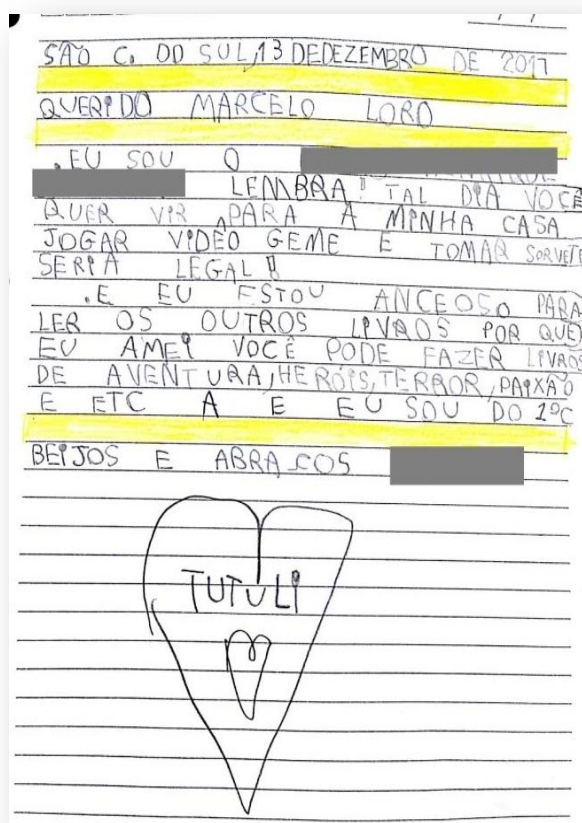 SÃO C. DO SUL, 13 DEDEZEMBRO DE 2017
QUERIDO MARCELO LORO
.EU SOU O
LEMBRA! TAL DIA VOCÊ
QUER VIR PARA A MINHA CASA
JOGAR VIDEO GEME E TOMAR SORVETE
SERIA LEGAL!!
.E EU ESTOU ANCEOSO PARA
LER OS OUTROS LIVROS POR QUE
EU AMEI VOCÊ PODE FAZER LIVROS
DE AVENTURA, HEROIS, TERROR, PAIXÃO
E ETC A E EU SOU DO 1ºC
BEIJOS E ABRACOS
TUTULI